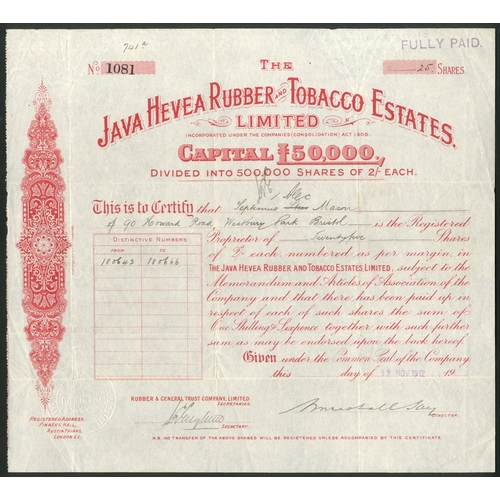 741
FULLY PAID.
No 1081
THE
25 SHARES
JAVA HEVEA RUBBER AND TOBACCO ESTATES,
LIMITED
(INCORPORATED UNDER THE COMPANIES (CONSOLIDATION) ACT 1908.
CAPITAL £50,000,
DIVIDED INTO 500,000 SHARES OF 2/- EACH.
This is to Certify that Septimus Alec Mason
of 90 Howard Road Westbury Park Bristol is the Registered
Proprietor of Twentyfive Shares
of 2/- each numbered as per margin, in
THE JAVA HEVEA RUBBER AND TOBACCO ESTATES, LIMITED, subject to the
Memorandum and Articles of Association of the
Company and that there has been paid up in
respect of each of such shares the sum of
One Shilling & Sixpence together with such further
sum as may be endorsed upon the back hereof.
Given under the Common Seal of the Company
this day of 13 NOV 1912 19
DISTINCTIVE NUMBERS
FROM TO
180642 180666
RUBBER & GENERAL TRUST COMPANY, LIMITED.
SECRETARIES.
SECRETARY.
DIRECTOR.
REGISTERED ADDRESS,
PINNERS HALL,
AUSTIN FRIARS,
LONDON E.C.
N.B. NO TRANSFER OF THE ABOVE SHARES WILL BE REGISTERED UNLESS ACCOMPANIED BY THIS CERTIFICATE.